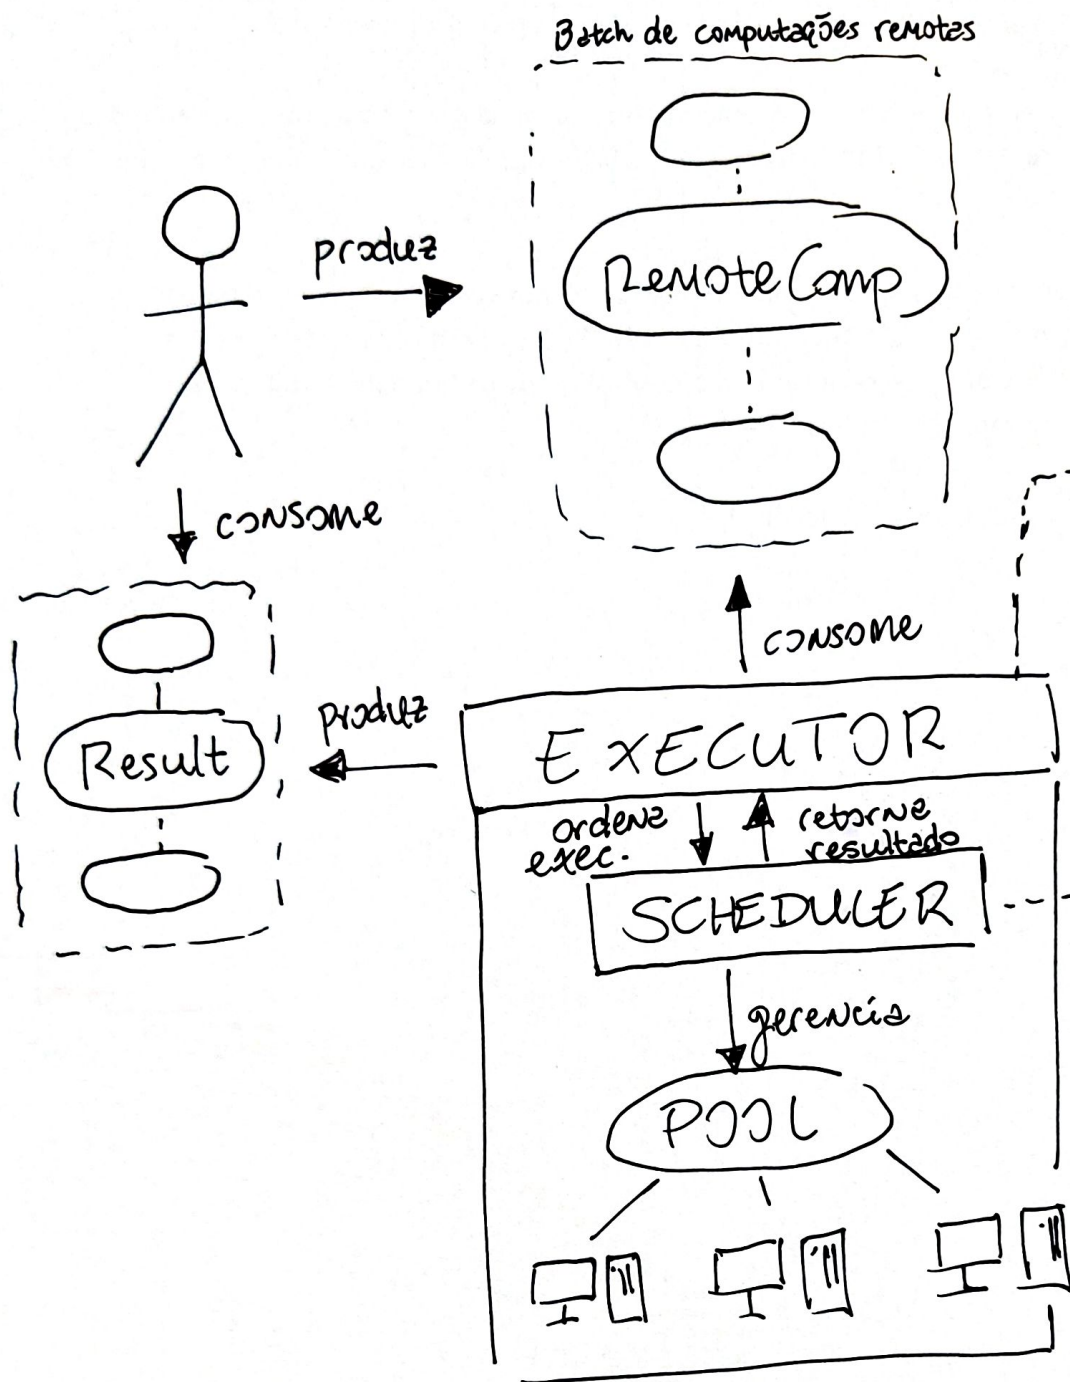 Batch de computações remotas
produz
RemoteComp
consome
consome
Result
produz
EXECUTOR
ordena
exec.
retorna
resultado
SCHEDULER
gerencia
POOL